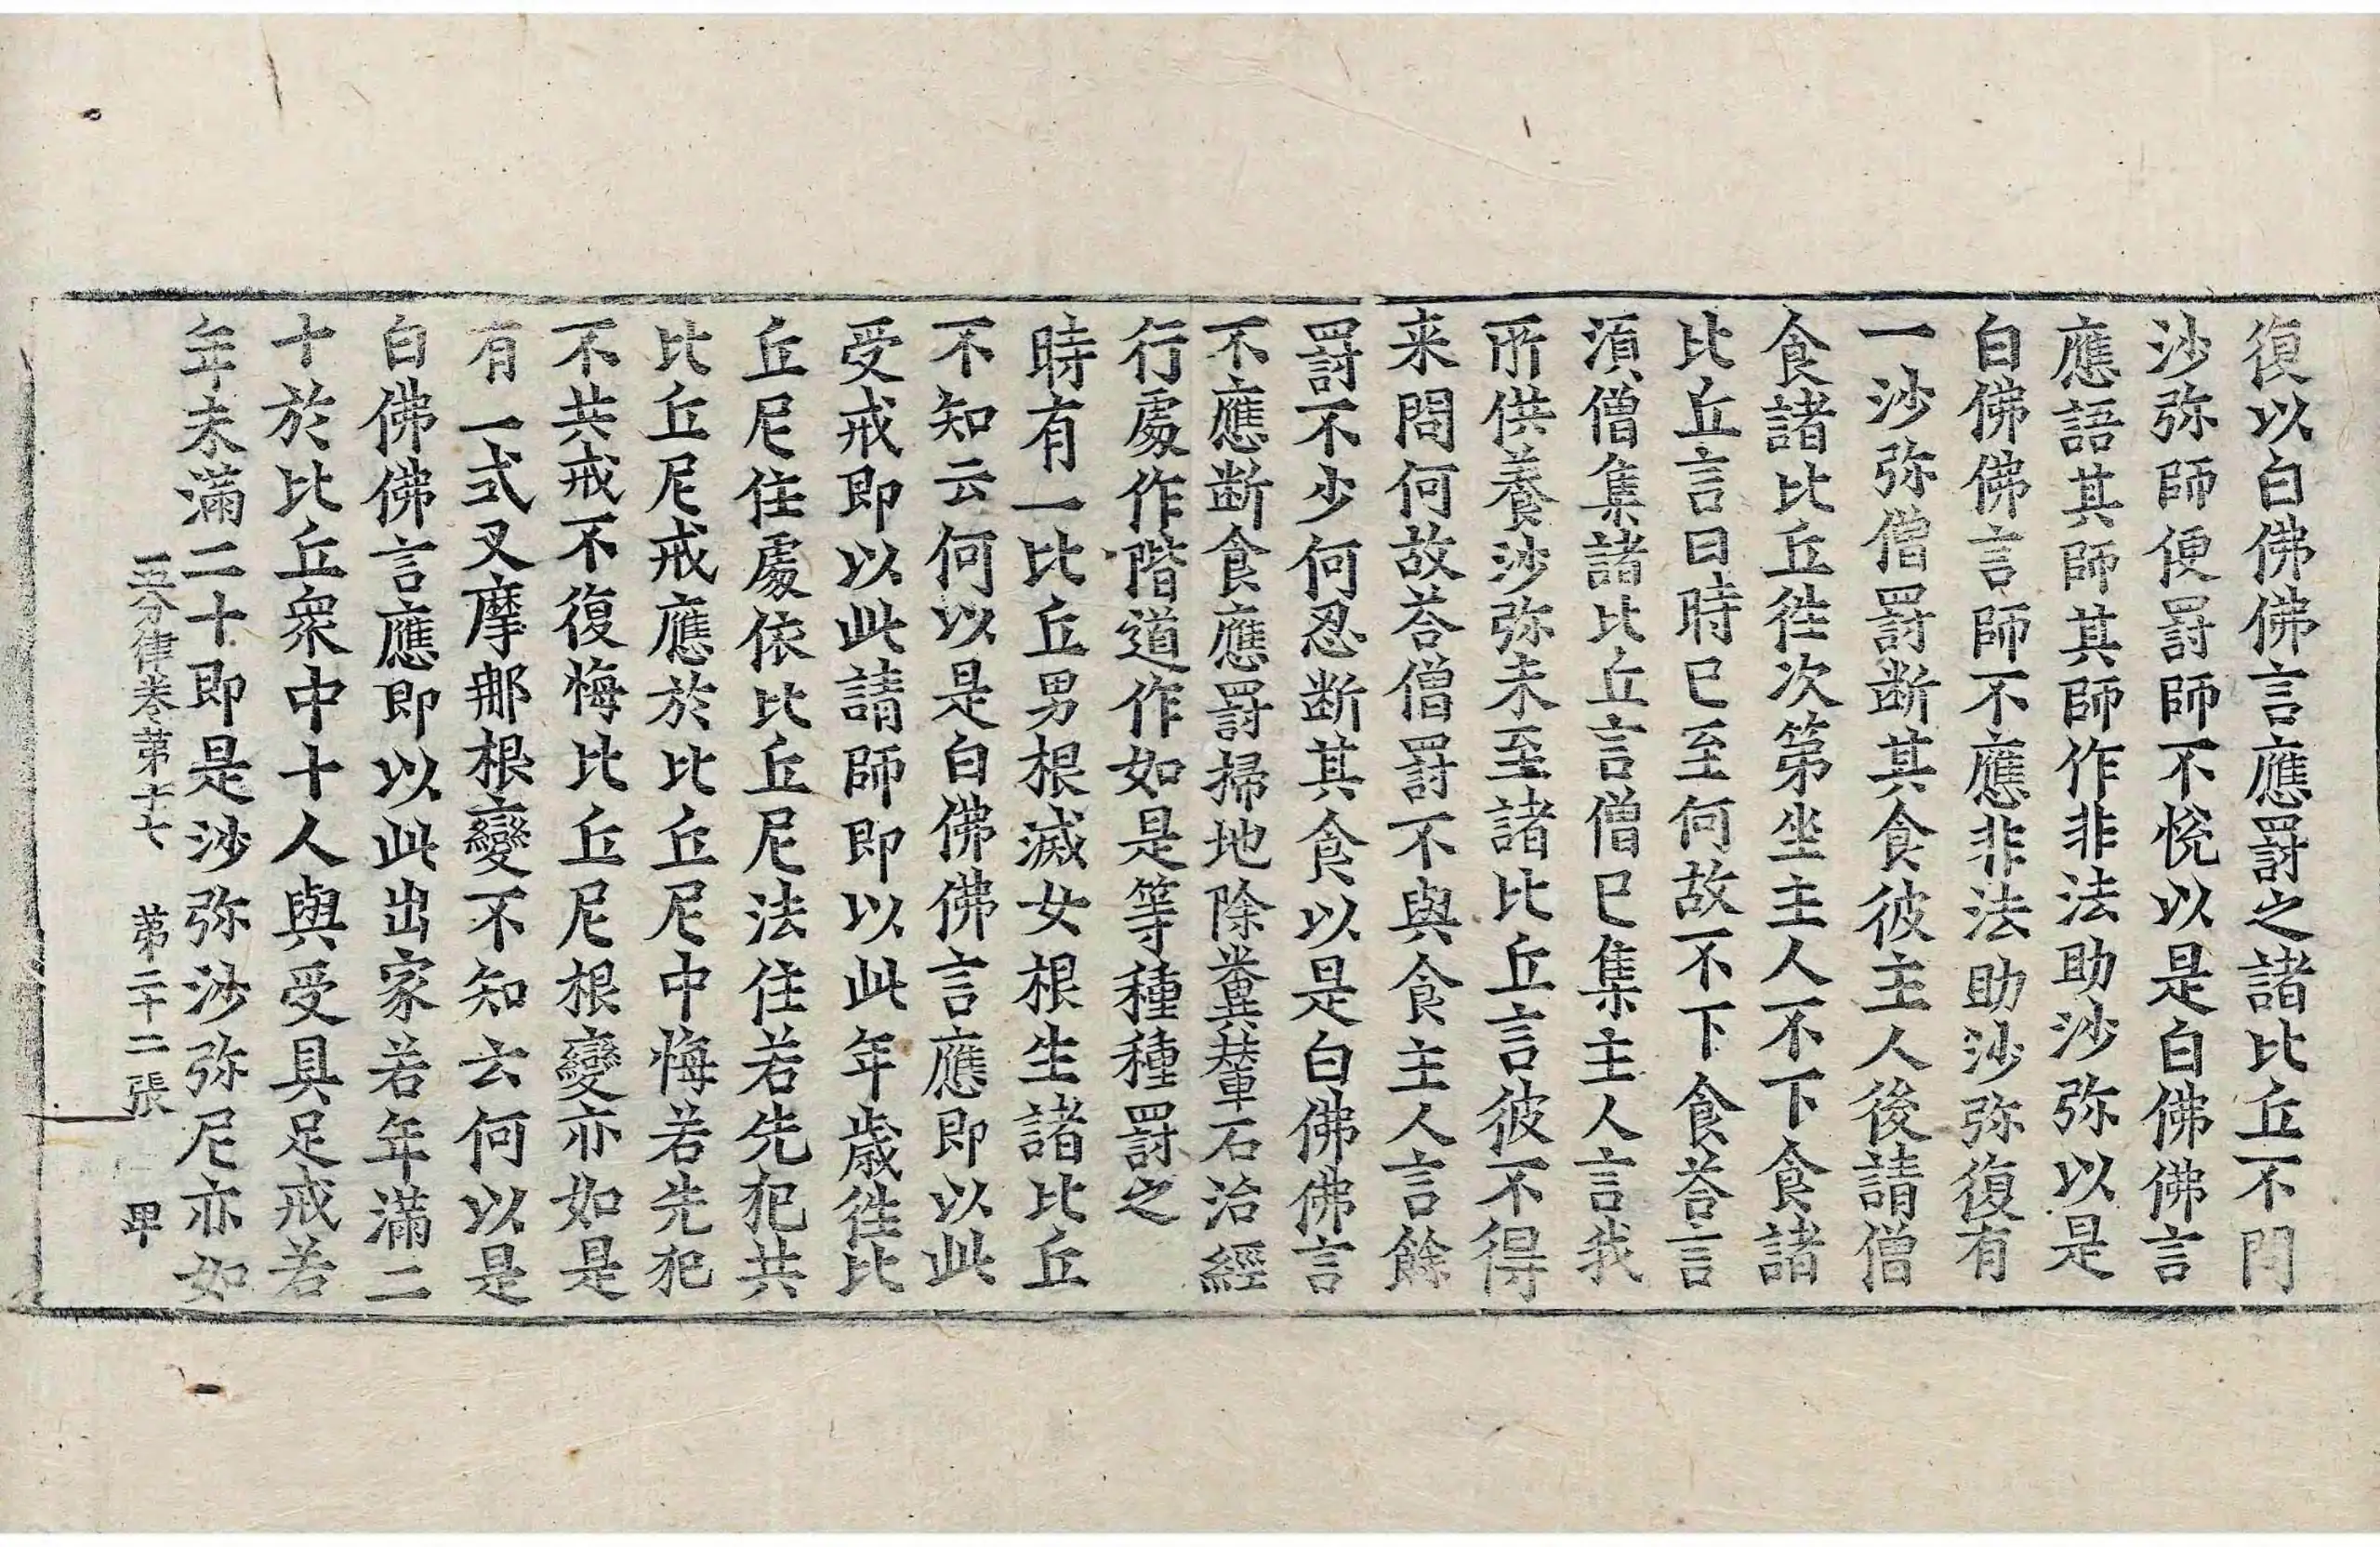 復以白佛佛言應罰之諸比丘不問
沙弥師便罰師不悅以是白佛佛言
應語其師其師作非法助沙弥以是
白佛佛言師不應非法助沙弥復有
一沙弥僧罰断其食彼主人後請僧
食諸比丘徃次第坐主人不下食諸
比丘言日時已至何故不下食荅言
湏僧集諸比丘言僧已集主人言我
所供養沙弥未至諸比丘言彼不得
来問何故荅僧罰不與食主人言餘
罰不少何忍断其食以是白佛佛言
不應断食應罰掃地除糞輦石治經
行處作階道作如是等種種罰之
時有一比丘男根滅女根生諸比丘
不知云何以是白佛佛言應即以此
受戒即以此請師即以此年歳徃比
丘尼住處依比丘尼法住若先犯共
比丘尼戒應於比丘尼中悔若先犯
不共戒不復悔比丘尼根變亦如是
有一式叉摩那根變不知云何以是
白佛佛言應即以此出家若年滿二
十於比丘衆中十人與受具足戒若
年未滿二十即是沙弥沙弥尼亦如
五分律卷第十七 第二十二張 甲